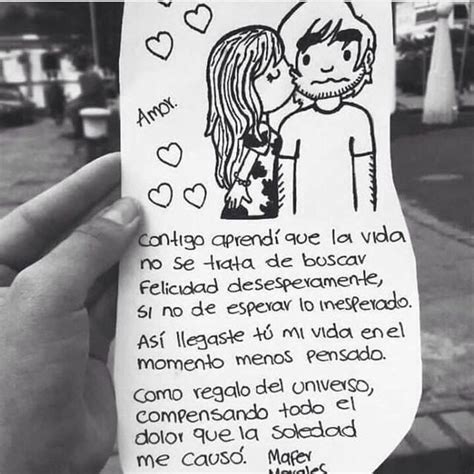 Amor.
Contigo aprendí que la vida
no se trata de buscar
Felicidad desesperamente,
si no de esperar lo inesperado.
Así llegaste tú mi vida en el
momento menos pensado.
Como regalo del universo,
compensando todo el
dolor que la soledad
me causó. Mafer
Morales